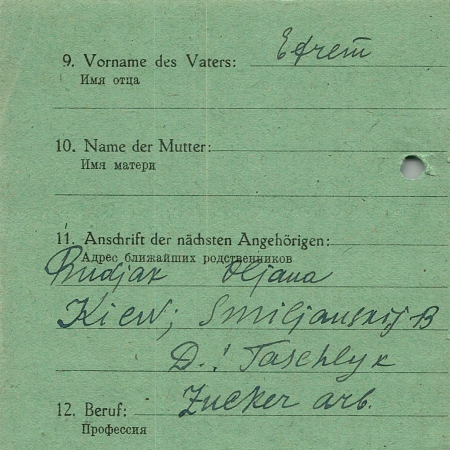 9. Vorname des Vaters: Efrem
Имя отца
10. Name der Mutter:
Имя матери
11. Anschrift der nächsten Angehörigen:
Адрес ближайших родственников
Oljana
Kiew; Smiljanskij B
D.: Taschlyk
12. Beruf: Zucker arb.
Профессия